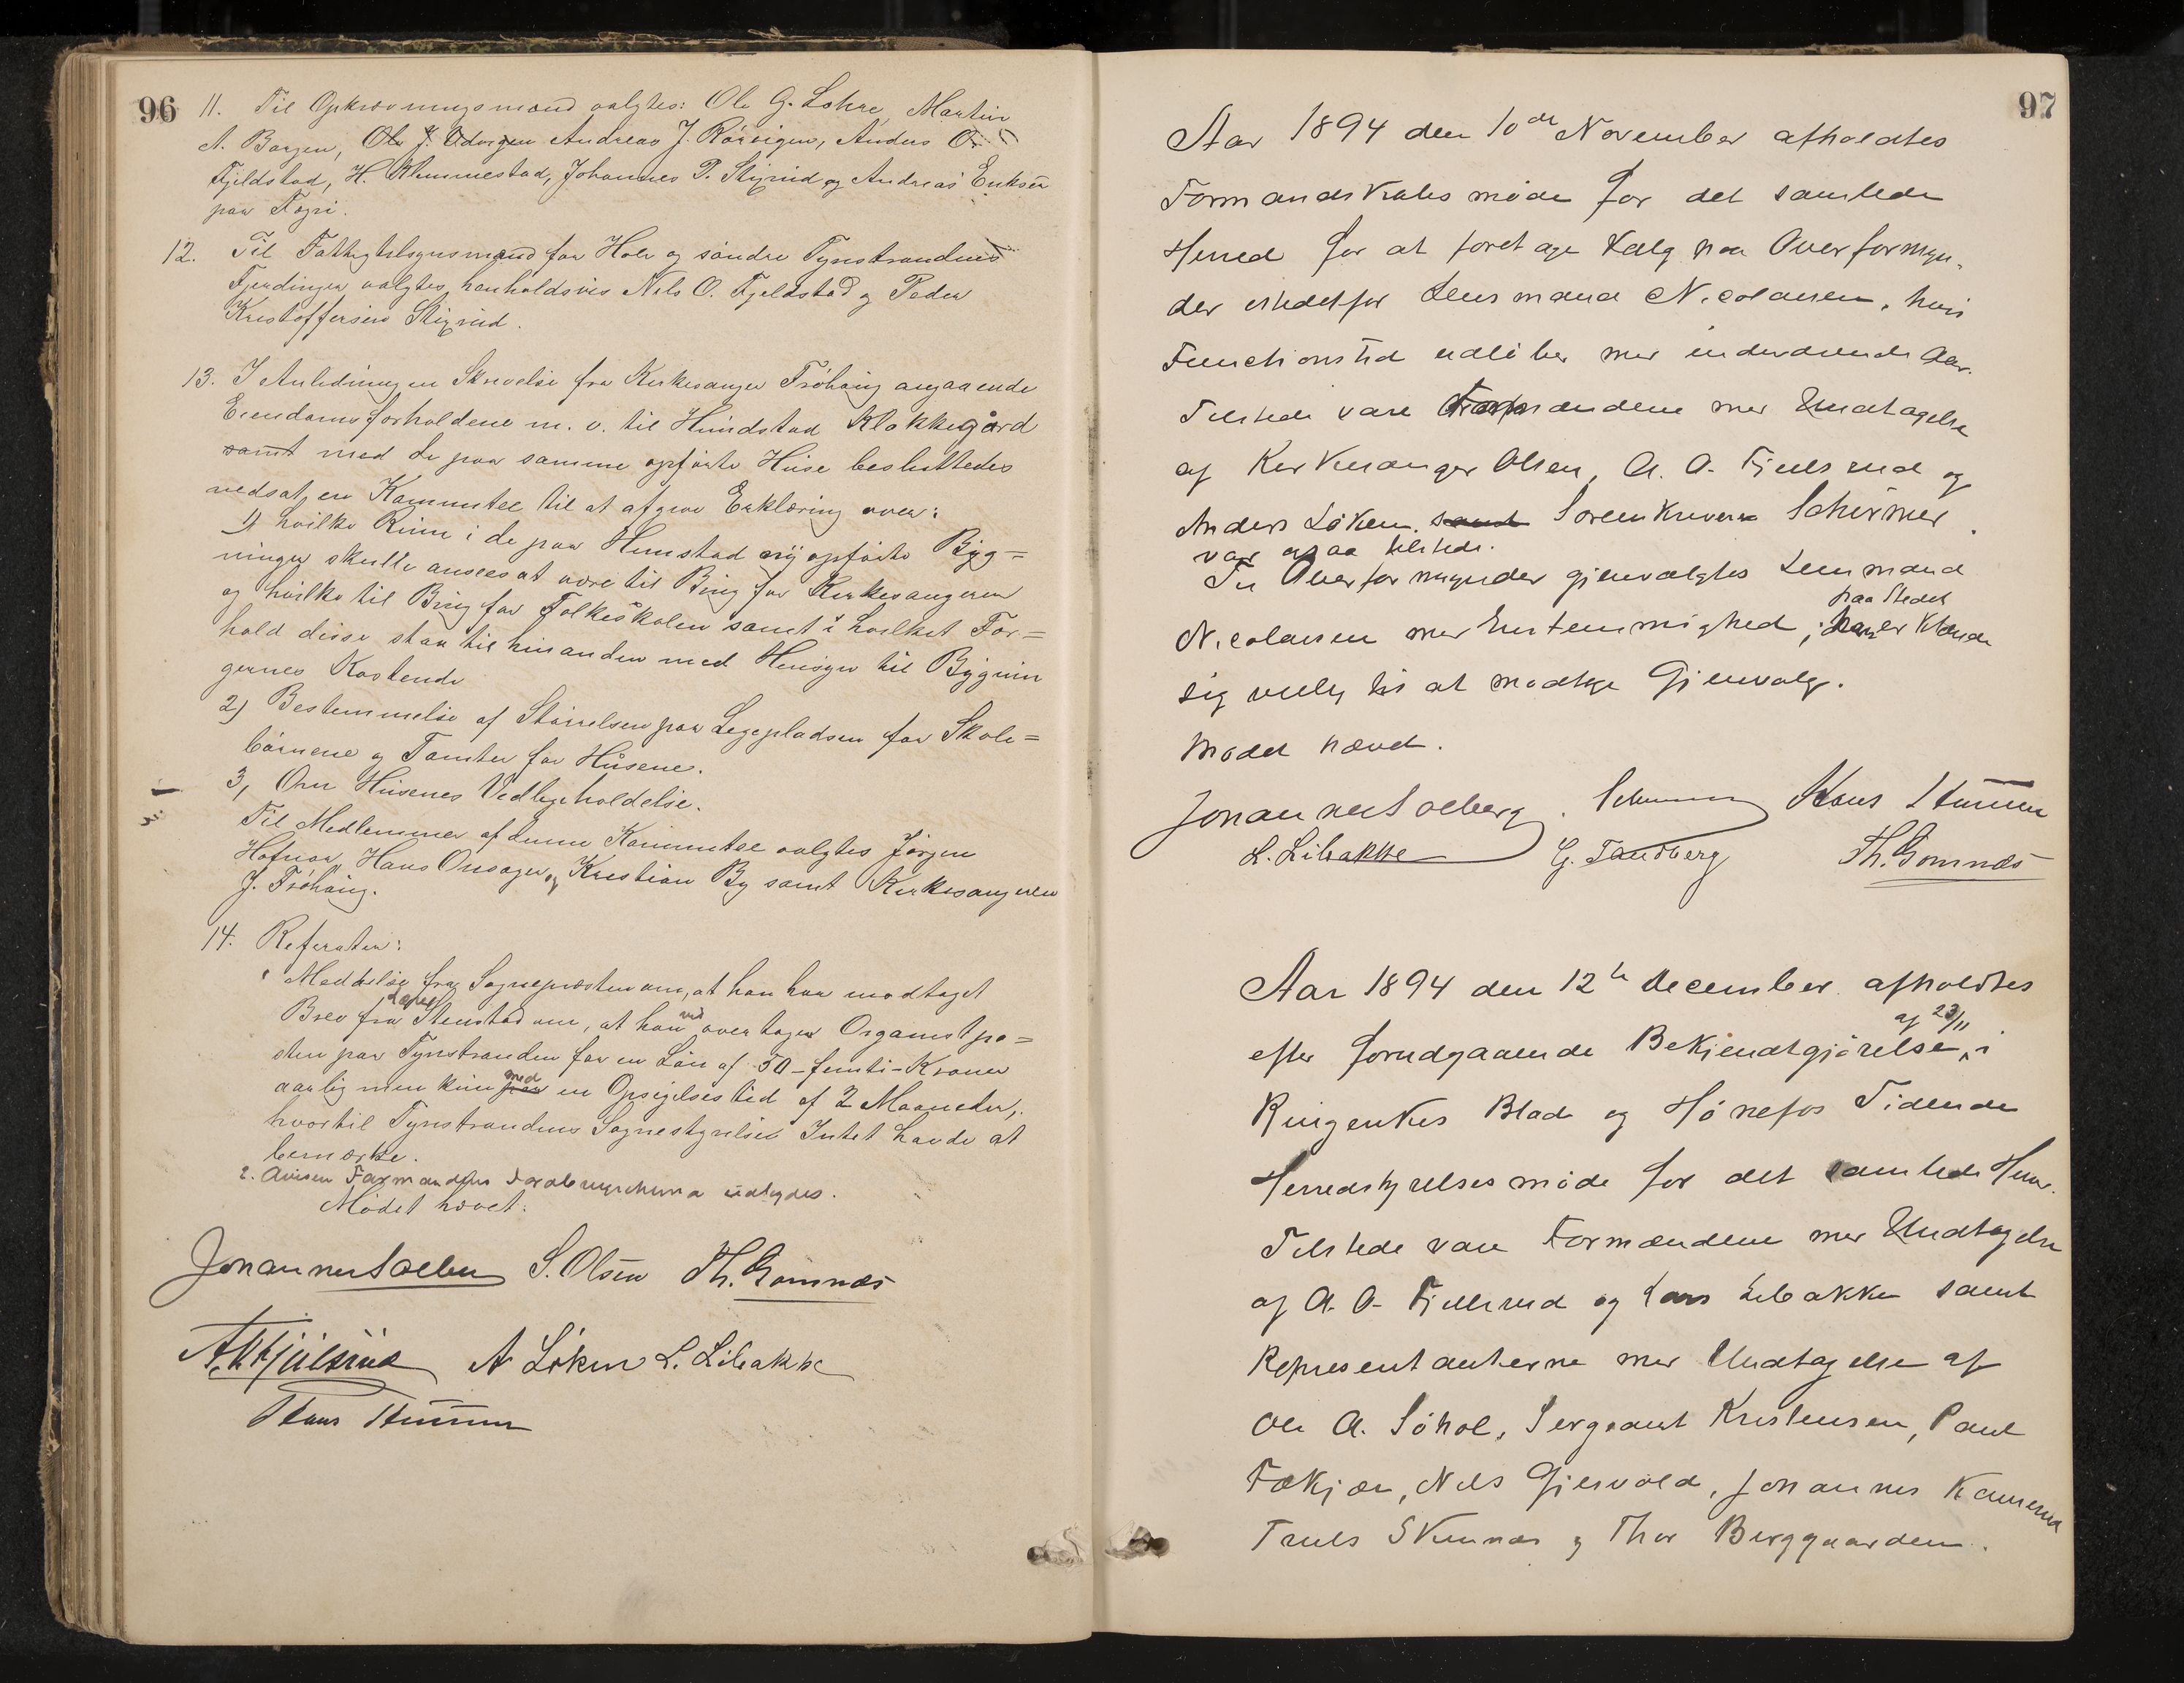 96
11. Til Opkrævningsmænd valgtes: Ole G. Lohre, Martin
A. Borgen, Ole J. Andreas J. Rörvigen, Anders O.
Fjeldstad, H. Klemmestad, Johannes P. Stixrud og Andreas Eriksen
paa Fegri.
12. Til Fattigtilsynsmænd for Hole og söndre Tyristrandens
Fjerdinger valgtes henholdsvis Nils O. Fjeldstad og Peder
Kristoffersen Stixrud.
13. I Anledning en Skrivelse fra Kirkesanger Fröhaug angaaende
Eiendomsforholdene m. v. til Hundstad Klokkegård
samt med de paa samme opførte Huse besluttedes
nedsat en Kommitee til at afgive Erklæring over:
1) hvilke Rum i de paa Hunstad ny opførte Byg=
ninger skulle ansees at være til Brug for Kirkesangeren
og hvilke til Brug for Folkeskolen samt i hvilket For=
hold disse staa til hinanden med Hensyn til Bygnin
gernes Kostende
2) Bestemmelse af Störrelsen paa Legepladsen for Skole=
börnene og Tomter for Husene.
3, Om Husenes Vedligeholdelse.
Til Medlemmer af denne Kommitee valgtes Jörgen
Hofnor, Hans Onsager, og Kristian By samt Kirkesangeren
J. Fröhaug.
14. Referater:
1 Meddelelse fra Sognepresten om, at han har modtaget
Brev fra Stenstad om, at han overtager Organistpo=
sten paa Tyristranden for en Lön af 50 - femti - Kroner
aarlig men kun paa med en Opsigelsestid af 2 Maaneder,
hvortil Tyristrandens Sognestyrelse Intet havde at
bemærke.
2. Avisen Formandens udlagdes.
Mödet hævet.
Johannes Solberg S. Olsen Th. Gomnæs
A. O. Fjulsrud A Löken L. Libakke
Hans Stumm
97
Aar 1894 den 10de November afholdtes
Formandskabsmöde for det samlede
Herred for at foretage Valg paa Overformyn-
der istedetfor Lensmand Nicolaisen, hvis
Functionstid udlöber med indeværende Aar.
Tilstede vare Formændene med Undtagelse
af Kirkesanger Olsen, A. O. Fjulsrud og
Anders Löken. samt Sorenskriver Schirmer
var ogsaa tilstede.
Til Overformynder gjenvalgtes Lensmand
paa Stedet
Nicolaisen med Enstemmighed; han erklærede
sig villig til at modtage Gjenvalg.
Mødet hævet.
Johannes Solberg. Schirmer Hans Stumm
L. Libakke G. Tandberg Th. Gomnæs
Aar 1894 den 12te December afholdtes
af 23/11
efter forudgaaende Bekjendtgjörelse i
Ringerikes Blad og Hönefos Tidende
Herredstyrelsesmöde for det samlede Herred.
Tilstede vare Formændene med Undtagelse
af A. O. Fjulsrud og Lars Libakke samt
Repræsentanterne med Undtagelse af
Ole A. Söhol, Sergeant Kristensen, Paul
Fækjær, Nils Gjesvold, Johannes Kamerud
Truls Skuenæs og Thor Berggaarden.